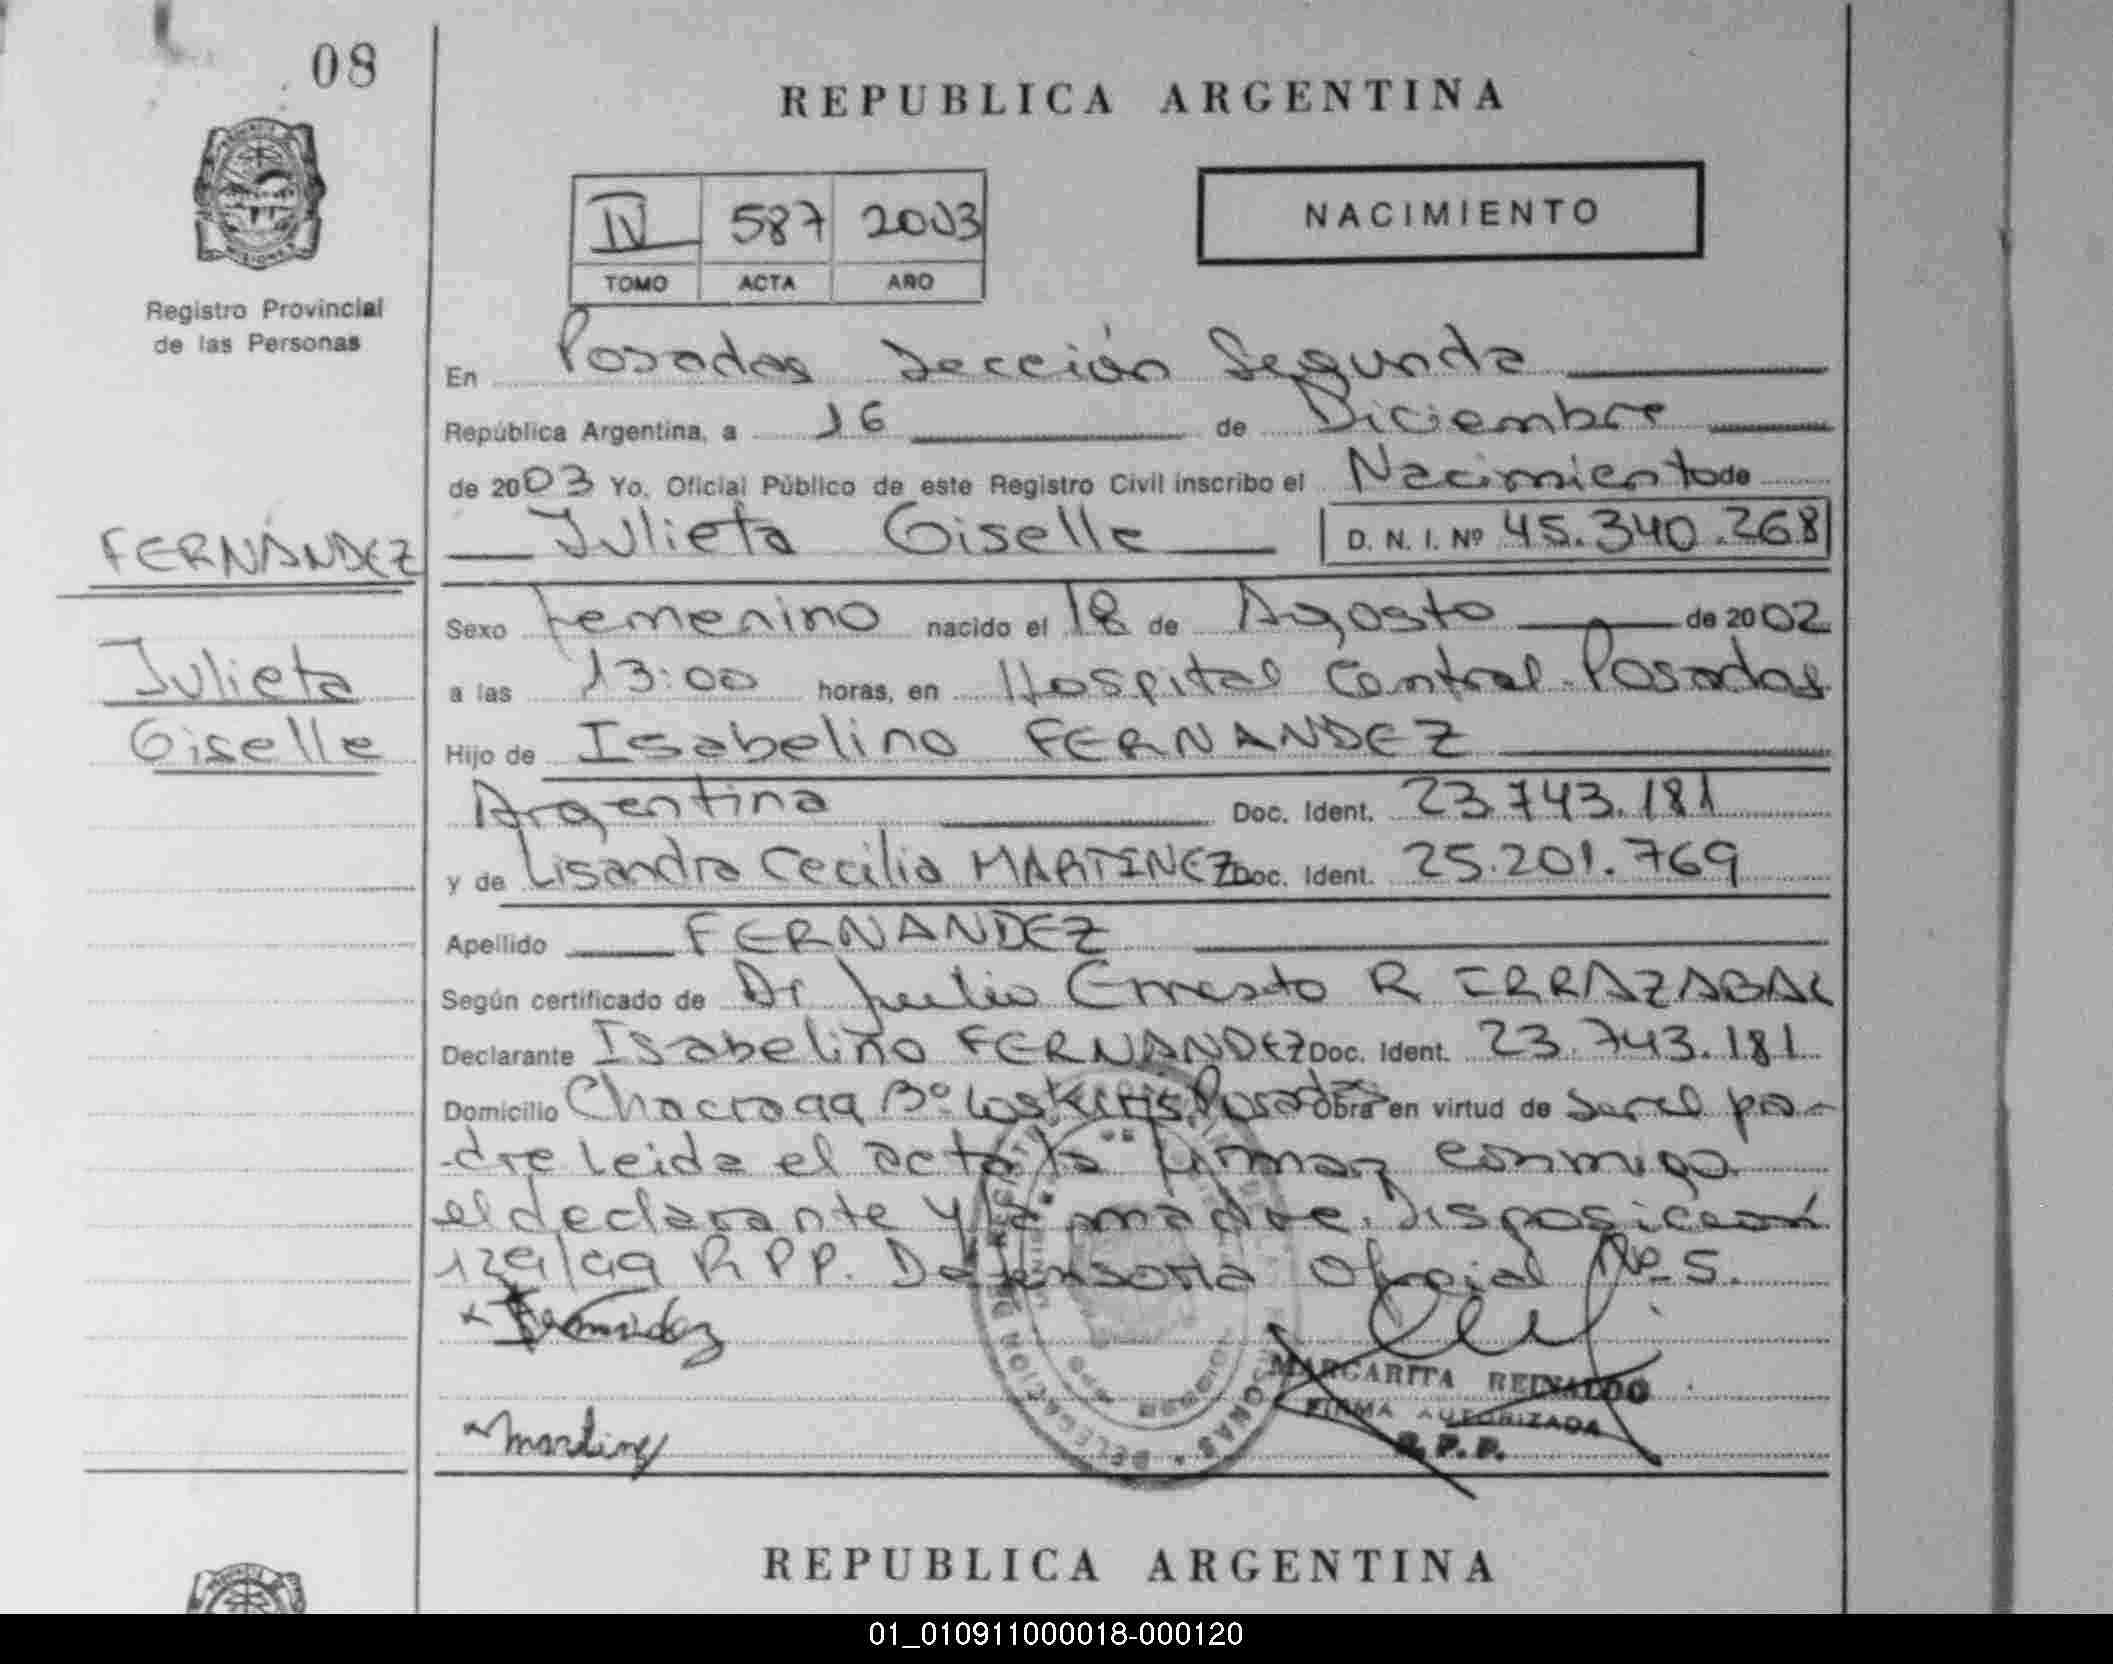 08
REPUBLICA ARGENTINA
IV 587 2003
TOMO ACTA AÑO
NACIMIENTO
Registro Provincial
de las Personas
En Posadas Sección Segunda
República Argentina, a 16 de Diciembre
de 2003 Yo, Oficial Público de este Registro Civil inscribo el Nacimiento de
FERNÁNDEZ
Julieta
Giselle
Julieta Giselle D. N. I. Nº 45.340.268
Sexo Femenino nacido el 18 de Agosto de 2002
a las 13:00 horas, en Hospital Central-Posadas
Hijo de Isabelino FERNANDEZ
Argentina Doc. Ident. 23.743.181
y de Lisandra Cecilia MARTINEZ Doc. Ident. 25.201.769
Apellido FERNANDEZ
Según certificado de Dr Julio Ernesto R IRRAZABAL
Declarante Isabelino FERNANDEZ Doc. Ident. 23.743.181
Domicilio Chacra 99 Bº Los Posadas Obra en virtud de ser el pa-
-dre leida el acta la firman conmigo
el declarante y la madre. Disposición
129/99 R P P. Defensoria Oficial Nº 5.
Fernandez
MARGARITA REINALDO
FIRMA AUTORIZADA
R. P. P.
Martinez
DELEGACION
REPUBLICA ARGENTINA
01_010911000018-000120